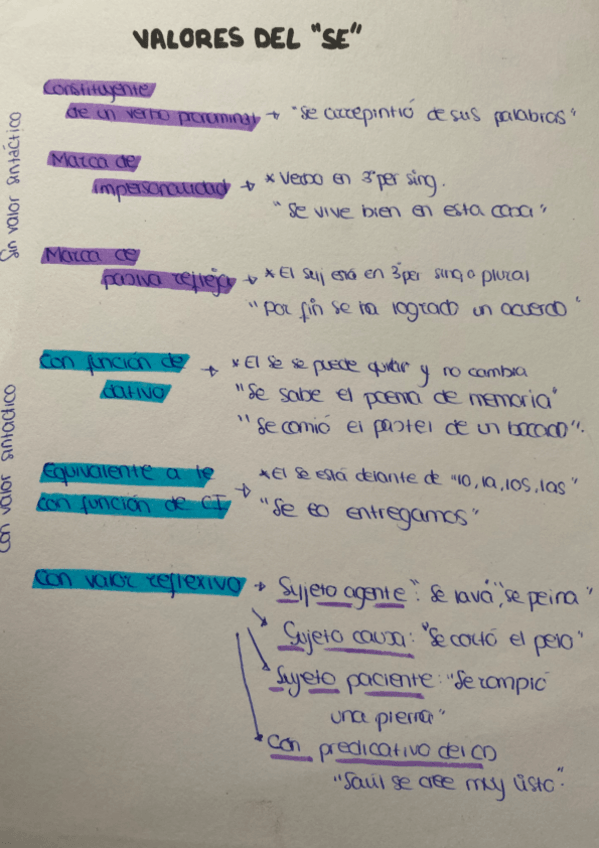 VALORES DEL "SE"
Sin valor sintáctico
Constituyente
de un verbo pronominal → "Se arrepintió de sus palabras"
Marca de
impersonalidad → * Verbo en 3ª per sing.
"Se vive bien en esta casa"
Marca de
pasiva refleja → * El suj está en 3ª per sing o plural
"Por fin se ha logrado un acuerdo"
Con valor sintactico
Con función de
dativo → * El se se puede quitar y no cambia
"Se sabe el poema de memoria"
"Se comió el pastel de un bocado".
Equivalente a le
con función de CI → * El se está delante de "lo, la, los, las"
"Se lo entregamos"
Con valor reflexivo → Sujeto agente: "Se lava", "se peina"
Sujeto causa: "Se cortó el pelo"
Sujeto paciente: "Se rompió
una pierna"
Con predicativo del CD
"Saúl se cree muy listo".